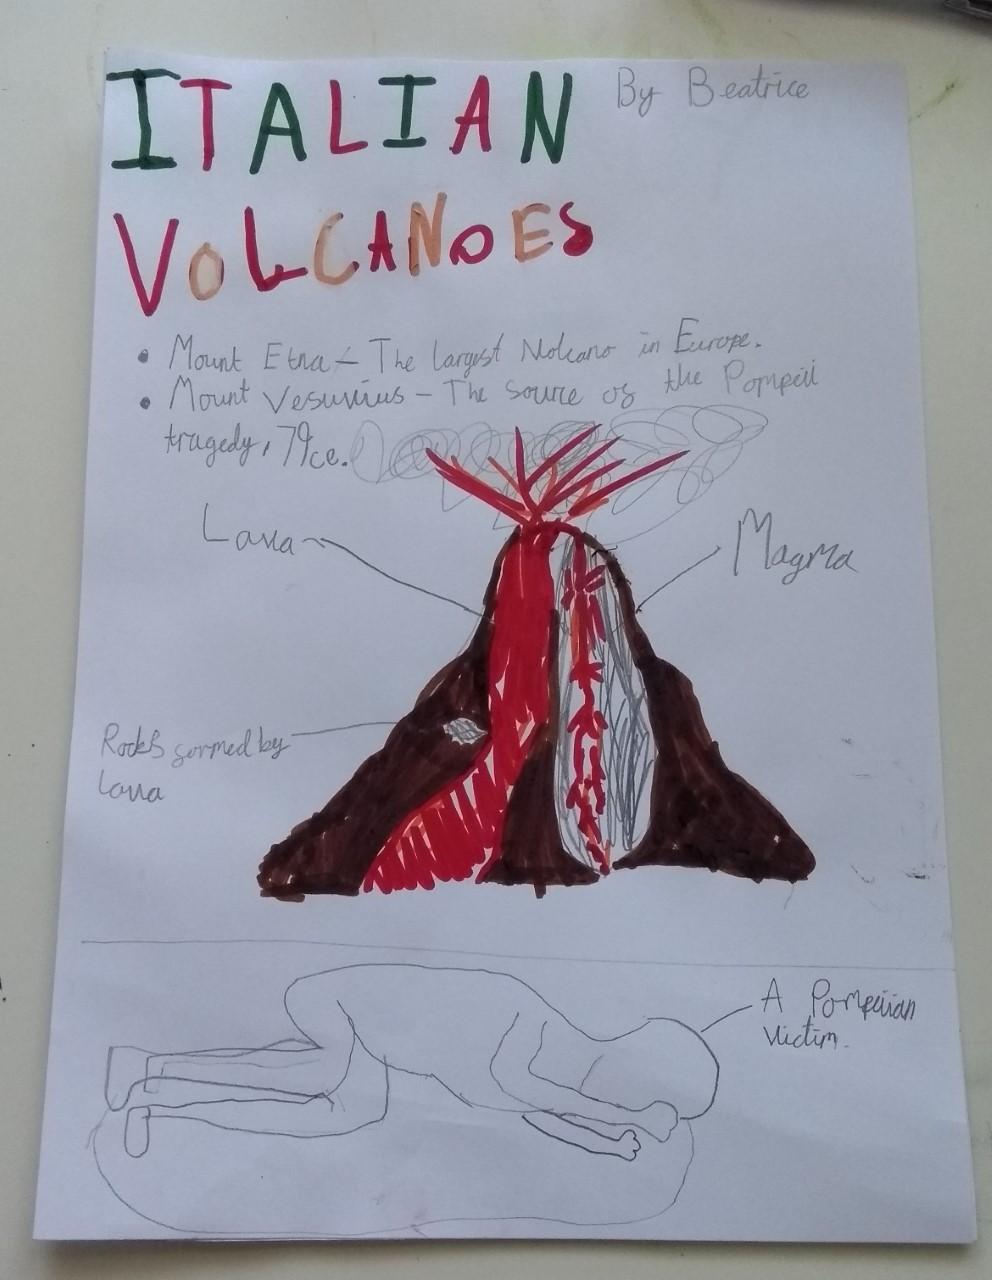 ITALIAN By Beatrice
VOLCANOES
• Mount Etna - The largest Volcano in Europe.
• Mount Vesuvius - The source of the Pompeii
tragedy, 79ce.
Lava
Magma
Rocks formed by
Lava
A Pompeiian
Victim.